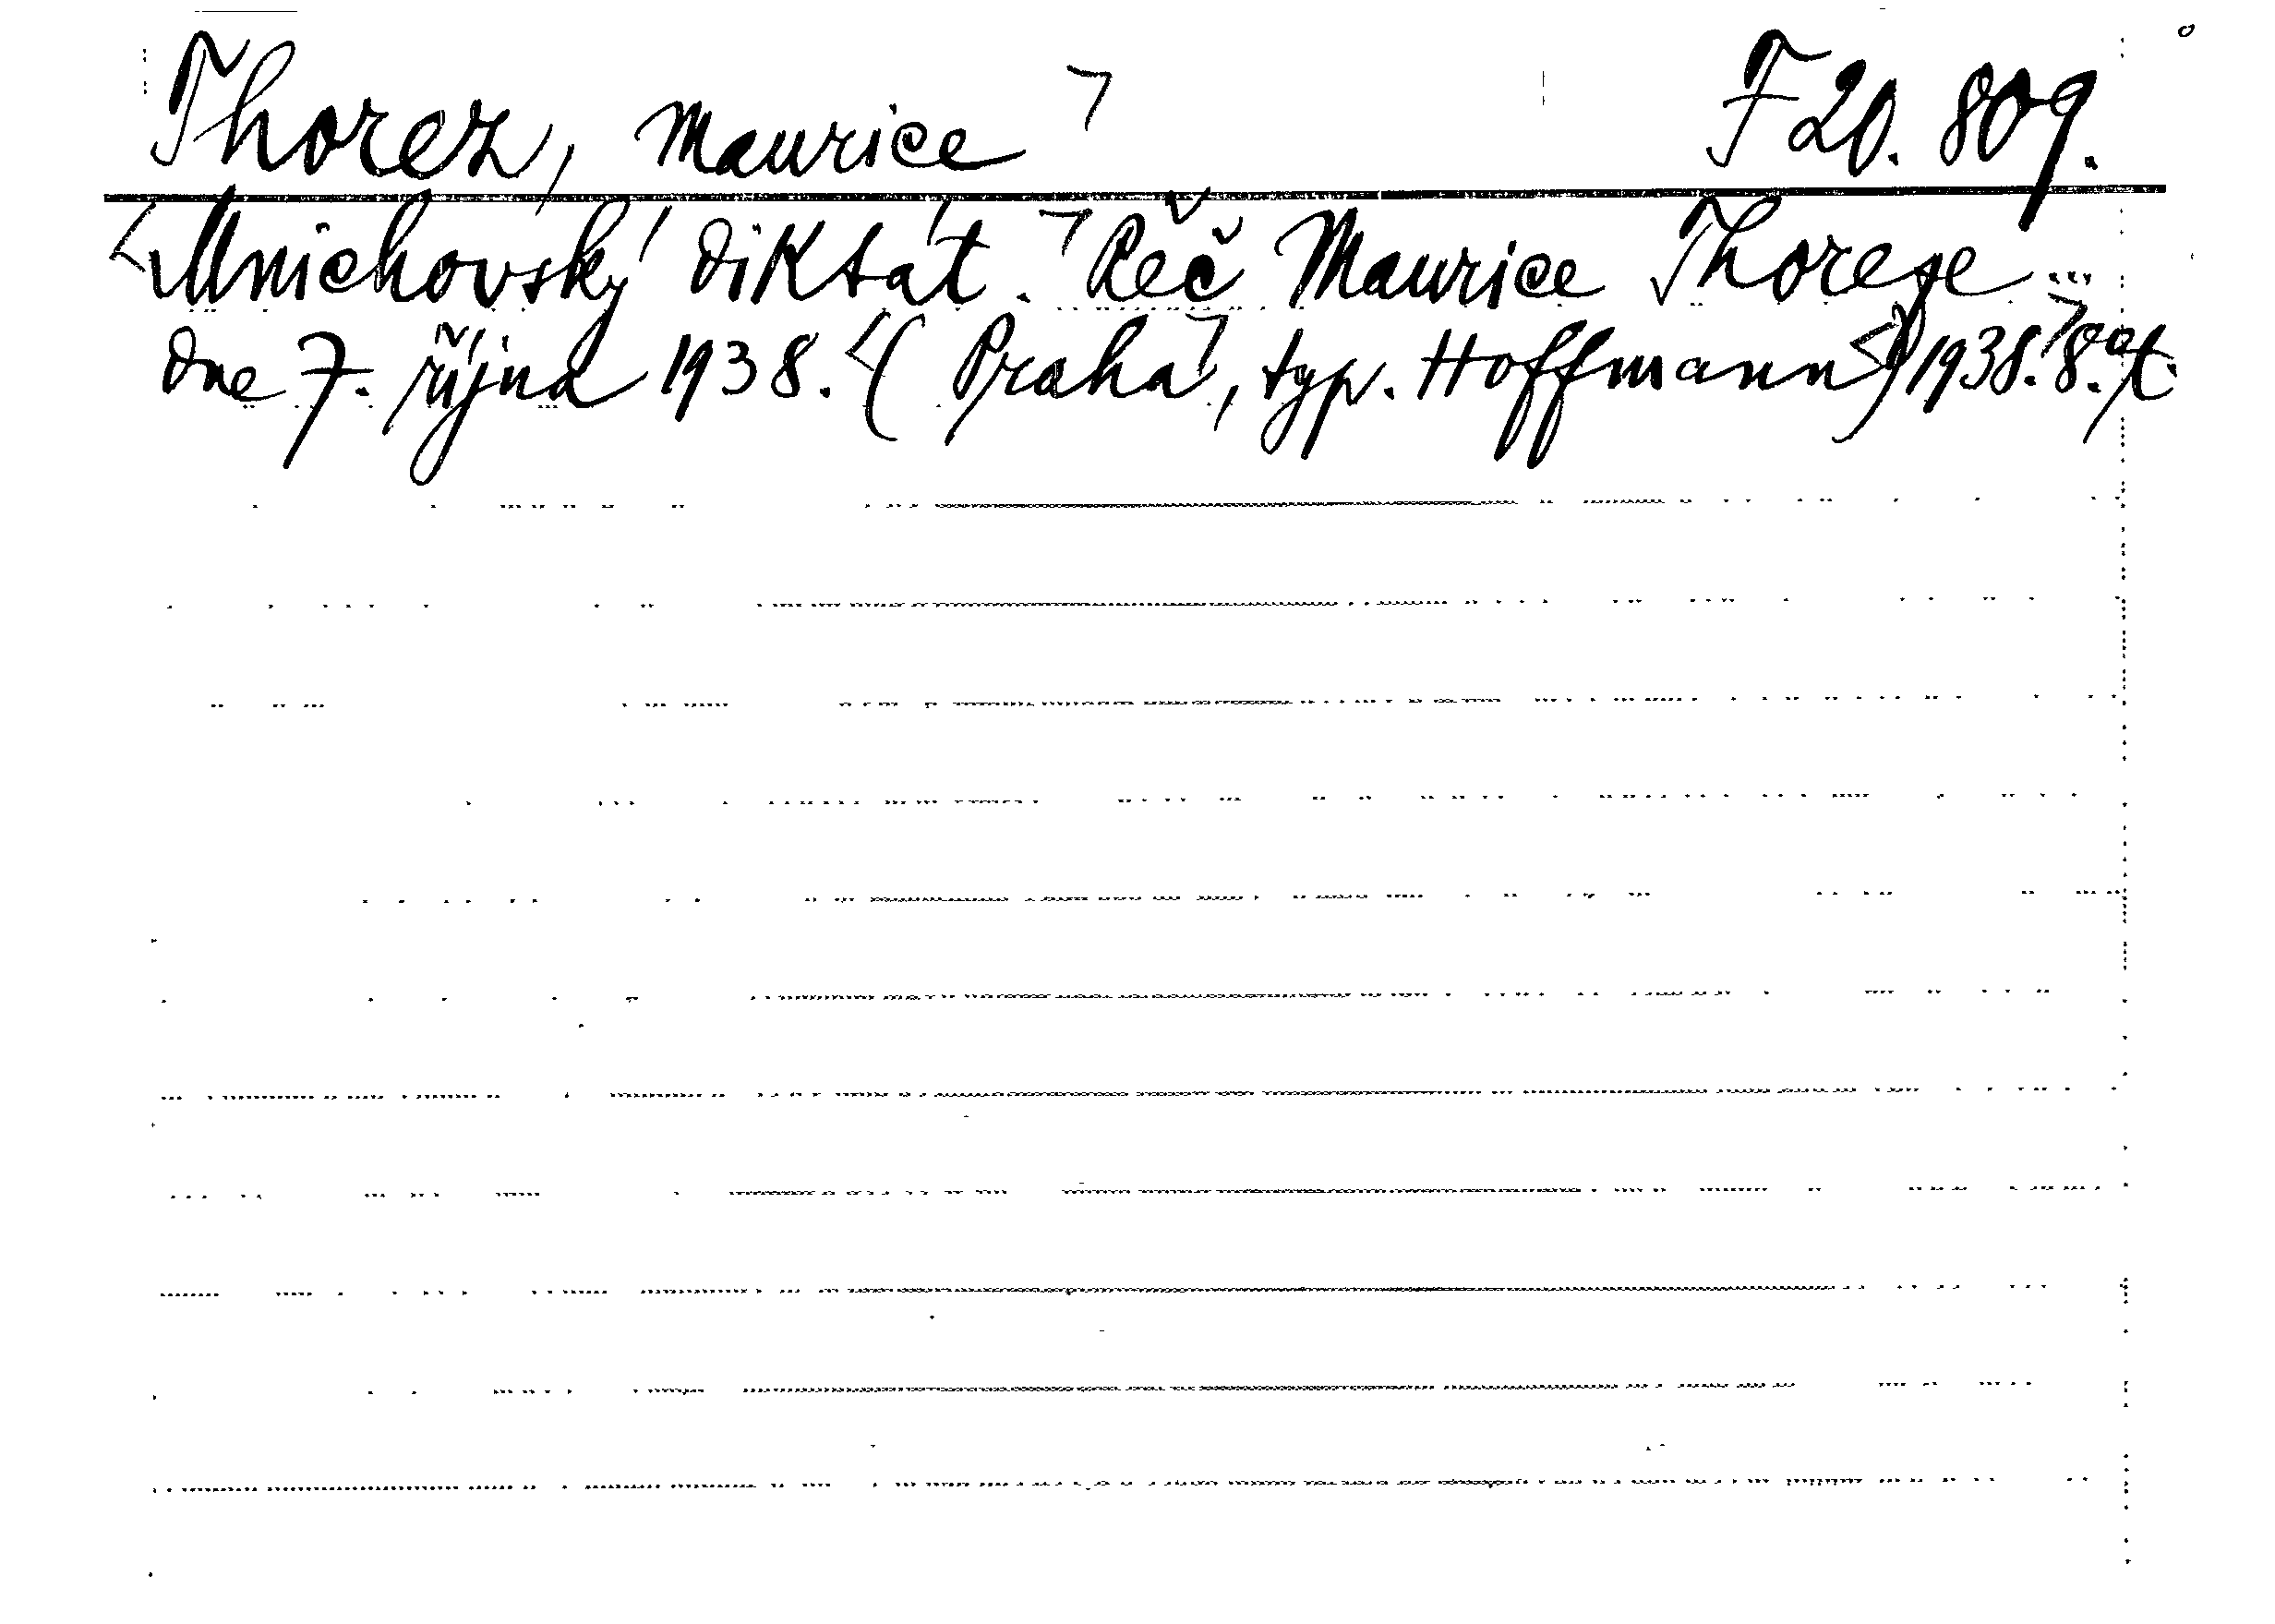 Thorez, Maurice F 20.809.
Mnichovský diktát. Řeč Maurice Thoreze...
dne 7. října 1938. (Praha, typ. Hoffmann) 1938. 8°